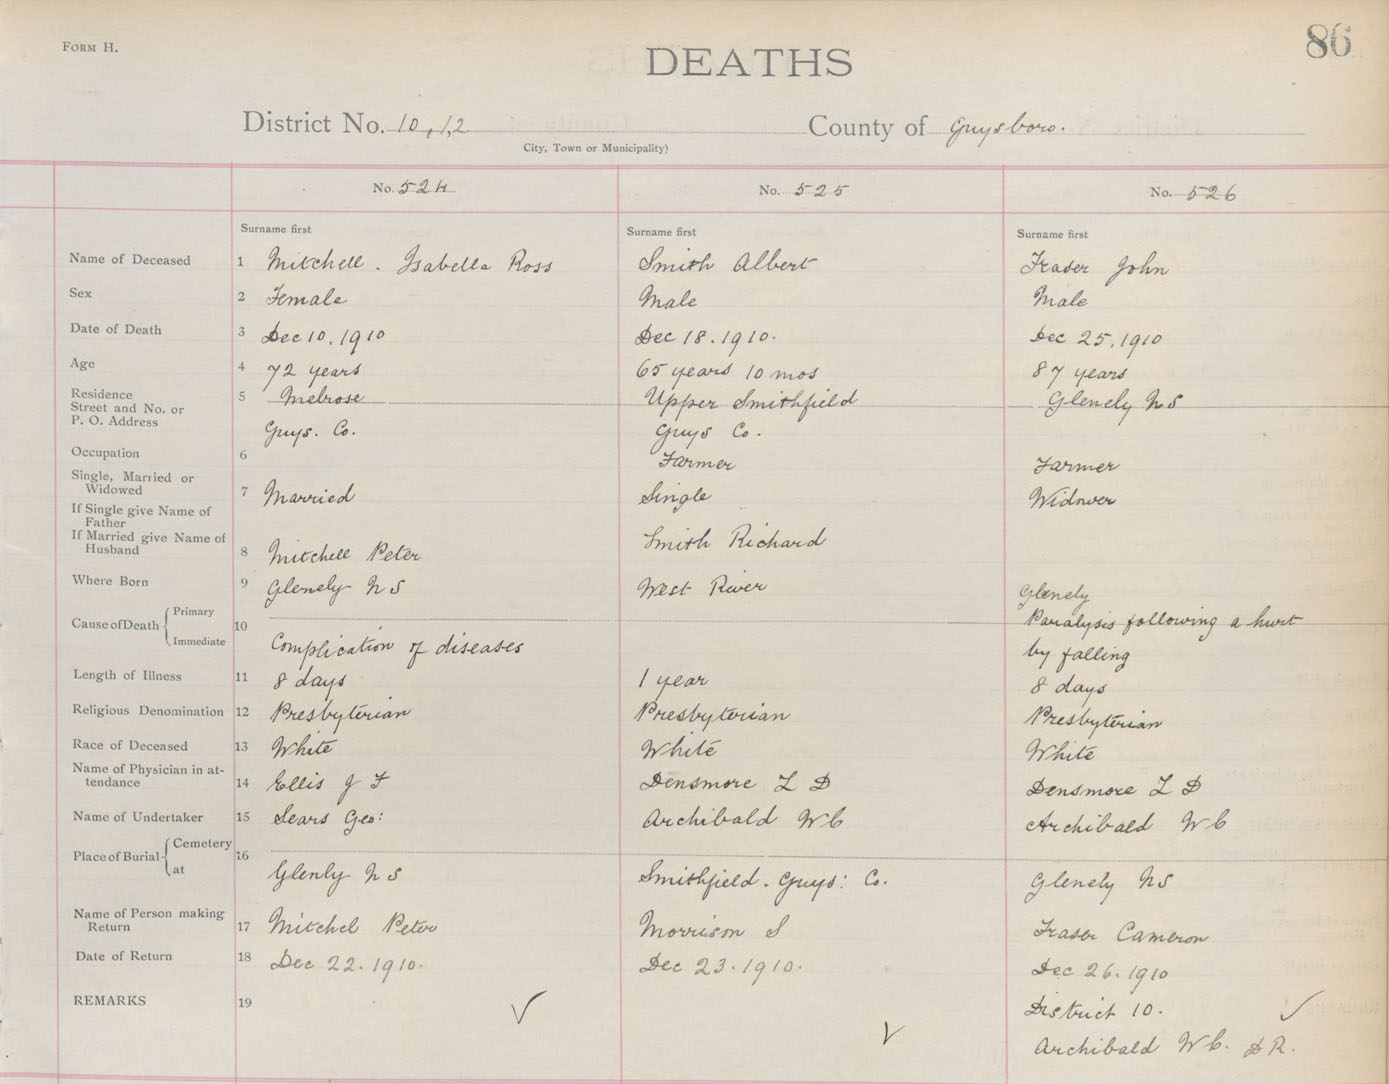 FORM H.
86
DEATHS
District No. 10, 1,2 County of Guysboro.
City, Town or Municipality)
No. 524 No. 525 No. 526
Surname first Surname first Surname first
Name of Deceased 1 Mitchell. Isabella Ross Smith Albert Fraser John
Sex 2 Female Male Male
Date of Death 3 Dec 10, 1910 Dec 18. 1910. Dec 25, 1910
Age 4 72 years 65 years 10 mos 87 years
Residence 5 Melrose Upper Smithfield Glenely NS
Street and No. or
P. O. Address Guys. Co. Guys Co.
Occupation 6 Farmer Farmer
Single, Married or
Widowed 7 Married Single Widower
If Single give Name of
Father
If Married give Name of Smith Richard
Husband 8 Mitchell Peter
Where Born 9 Glenely NS West River Glenely
Cause of Death Primary Paralysis following a hurt
10
Immediate Complication of diseases by falling
Length of Illness 11 8 days 1 year 8 days
Religious Denomination 12 Presbyterian Presbyterian Presbyterian
Race of Deceased 13 White White White
Name of Physician in at-
tendance 14 Ellis J F Densmore L D Densmore L D
Name of Undertaker 15 Sears Geo: Archibald WC Archibald WC
Place of Burial Cemetery
16
at Glenly NS Smithfield. Guys: Co. Glenely NS
Name of Person making
Return 17 Mitchel Peter Morrison S Fraser Cameron
Date of Return 18 Dec 22. 1910. Dec 23. 1910. Dec 26. 1910
REMARKS 19 District 10.
Archibald WC. DR.